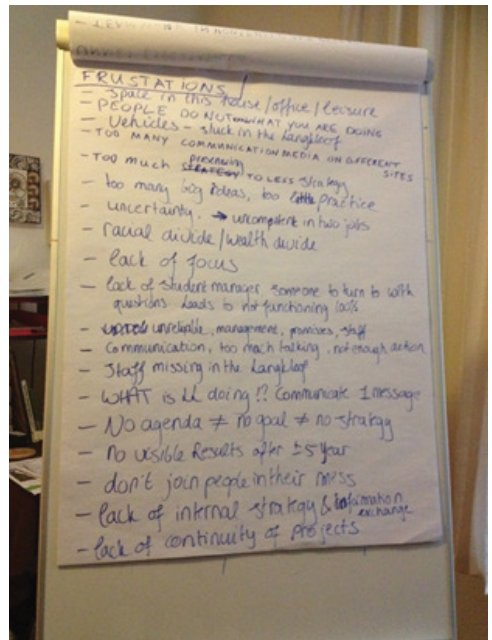 FRUSTATIONS
- Space in this house/office/leisure
- PEOPLE DO NOT WHAT YOU ARE DOING
- Vehicles - stuck in the Langkloof
- TOO MANY COMMUNICATION MEDIA ON DIFFERENT SITES
- TOO MUCH STRATEGY TO LESS strategy
- too many big ideas, too little practice
- uncertainty. → uncompetent in two jobs
- racial divide/wealth divide
- lack of focus
- lack of student manager someone to turn to with
questions leads to not functioning 100%
- unreliable, management, promises, staff
- Communication, too much talking, not enough action
- Staff missing in the Langkloof
- WHAT is LL doing!? Communicate 1 message
- No agenda ≠ no goal ≠ no strategy
- no visible Results after ±5 year
- don't join people in their mess
- lack of internal strategy & information
exchange
- lack of continuity of projects